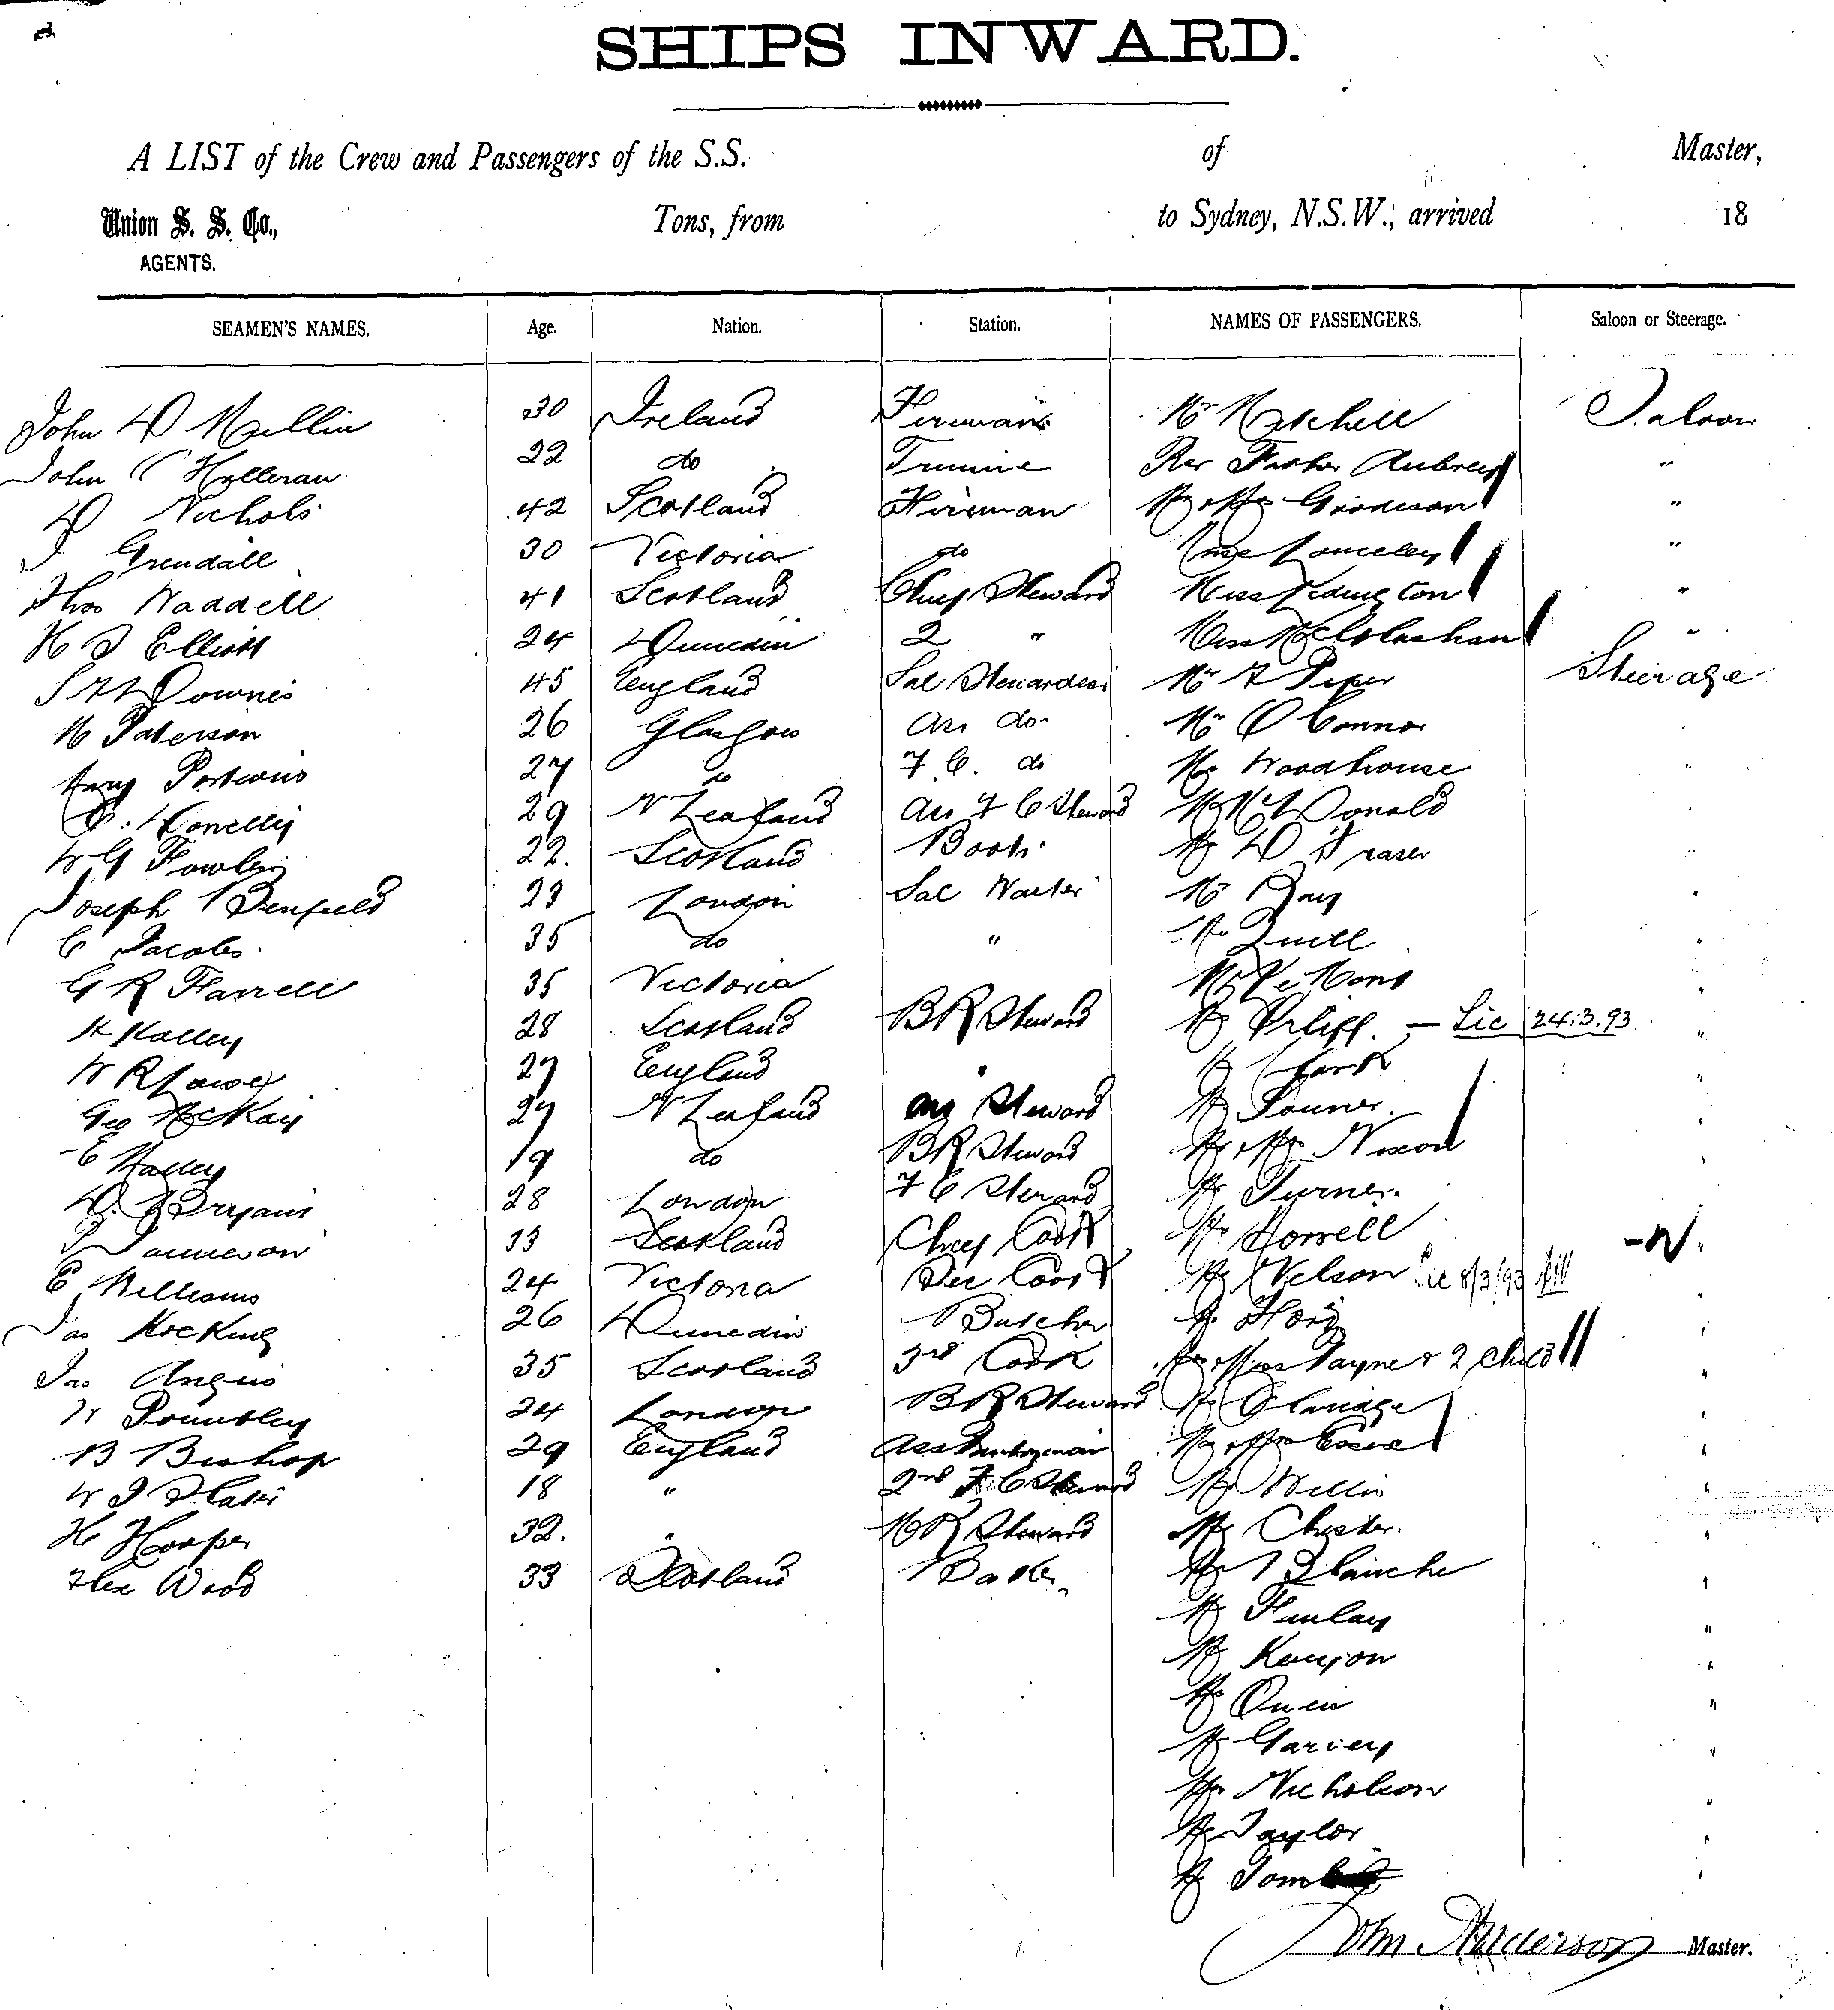 SHIPS INWARD.
A LIST of the Crew and Passengers of the S.S. of Master,
Union S. S. Co., Tons, from to Sydney, N.S.W., arrived 18
AGENTS.
SEAMEN'S NAMES. Age. Nation. Station. NAMES OF PASSENGERS. Saloon or Steerage.
John D Mullin 30 Ireland Fireman Mr Mitchell Saloon
John Halleran 22 do Trimmer Rev Father Aubrey "
D Nichols 42 Scotland Fireman Mr & Mrs "
Grendall 30 Victoria do "
Thos Waddell 41 Scotland Chief Steward Miss "
H J Elliott 24 Dunedin 2 " Miss McGlashan "
Downes 45 England Sal Stewardess Mr F Piper Steerage
M Paterson 26 Glasgow ass do Mr O'Connor
Porteous 27 do F.C. do Mr Woodhouse "
29 N Zealand ass F C Steward Mr McDonald
W G Fowler 22. Scotland Boots Mr D Fraser "
Joseph Benfield 23 London Sal Waiter Mr Day "
C Jacobs 35 do " Mr Quill "
G R Farrell 35 Victoria Mr "
H Halley 28 Scotland B R Steward Mr — Lic 24.3.93 "
W R Lawe 27 England Mr Clark "
Geo McKay 27 N Zealand Steward Mr "
E 19 do B R Steward Mr & Mrs Nixon "
28 London F C Steward Mr Turner "
33 Scotland Chief Cook Mr Howell
E Williams 24 Victoria Sec Cook Mr Nelson Lic 8/3/93
Jas McKing 26 Dunedin Butcher Mr "
Jas Angus 35 Scotland 3rd Cook Mr & Mrs Payne & 2 child "
24 London B R Steward Mr "
B Bishop 29 England Mr & Mrs "
W J Slater 18 " 2nd F. C Steward Mr "
H Hooper 32. " Steward Mr Chester "
Alex Wood 33 Scotland Baker Mr Blanche "
Mr Finlay "
Mr Kenyon "
Mr Owen "
Mr Garvey "
Mr Nicholson "
Mr Taylor "
Mr "
John Anderson Master.